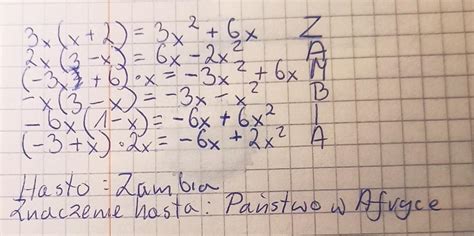 3x(x+2) = 3x² + 6x Z
2x(3-x) = 6x - 2x² A
(-3x + 6)·x = -3x² + 6x M
-x(3-x) = -3x - x² B
-6x(1-x) = -6x + 6x² I
(-3+x)·2x = -6x + 2x² A
Hasło: Zambia
Znaczenie hasła: Państwo w Afryce